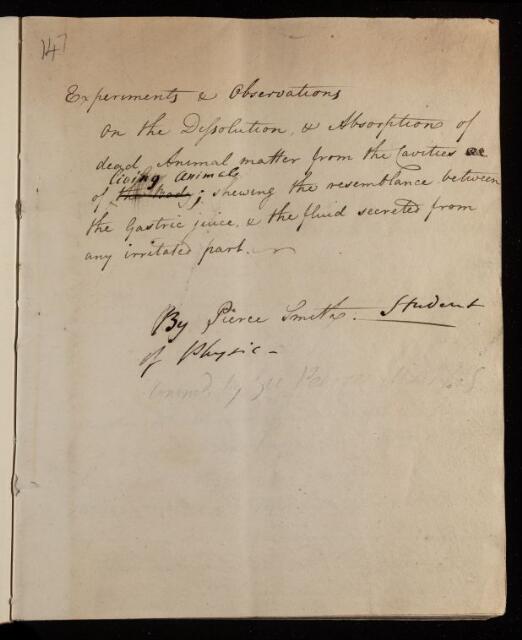 147
Experiments & Observations
on the Dissolution, & Absorption of
dead Animal matter from the Cavities
living animals
of the body; shewing the resemblance between
the Gastric juice, & the fluid secreted from
any irritated part.
By Pierce Smith. Student
of Physic -